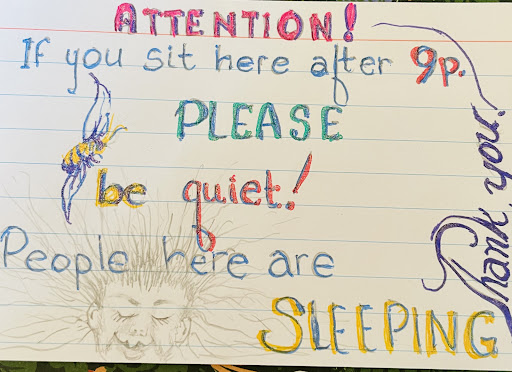 ATTENTION!
If you sit here after 9p.
PLEASE
be quiet!
People here are
SLEEPING
Thank you!